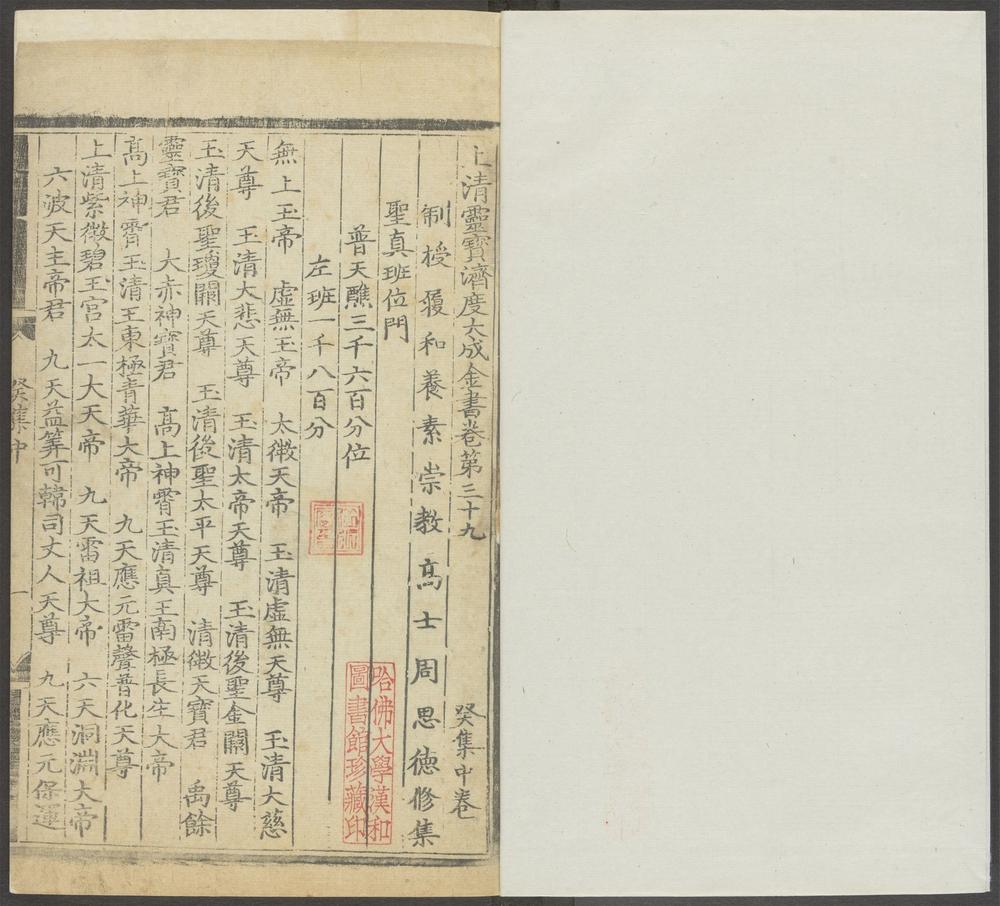 上清靈寶濟度大成金書卷第三十九　癸集中卷
制授履和養素崇教高士周思德修集
聖真班位門
普天醮三千六百分位
左班一千八百分
無上玉帝　虛無玉帝　太微天帝　玉清虛無天尊　玉清大慈
天尊　玉清大悲天尊　玉清太帝天尊　玉清後聖金闕天尊
玉清後聖瓊闕天尊　玉清後聖太平天尊　清微天寶君　禹餘
靈寶君　大赤神寶君　高上神霄玉清真王南極長生大帝
高上神霄玉清王東極青華大帝　九天應元雷聲普化天尊
上清紫微碧玉宮太一大天帝　九天雷祖大帝　六天洞淵大帝
六波天主帝君　九天益筭可韓司丈人天尊　九天應元保運
癸集中
一
哈佛大學漢和
圖書館珍藏印